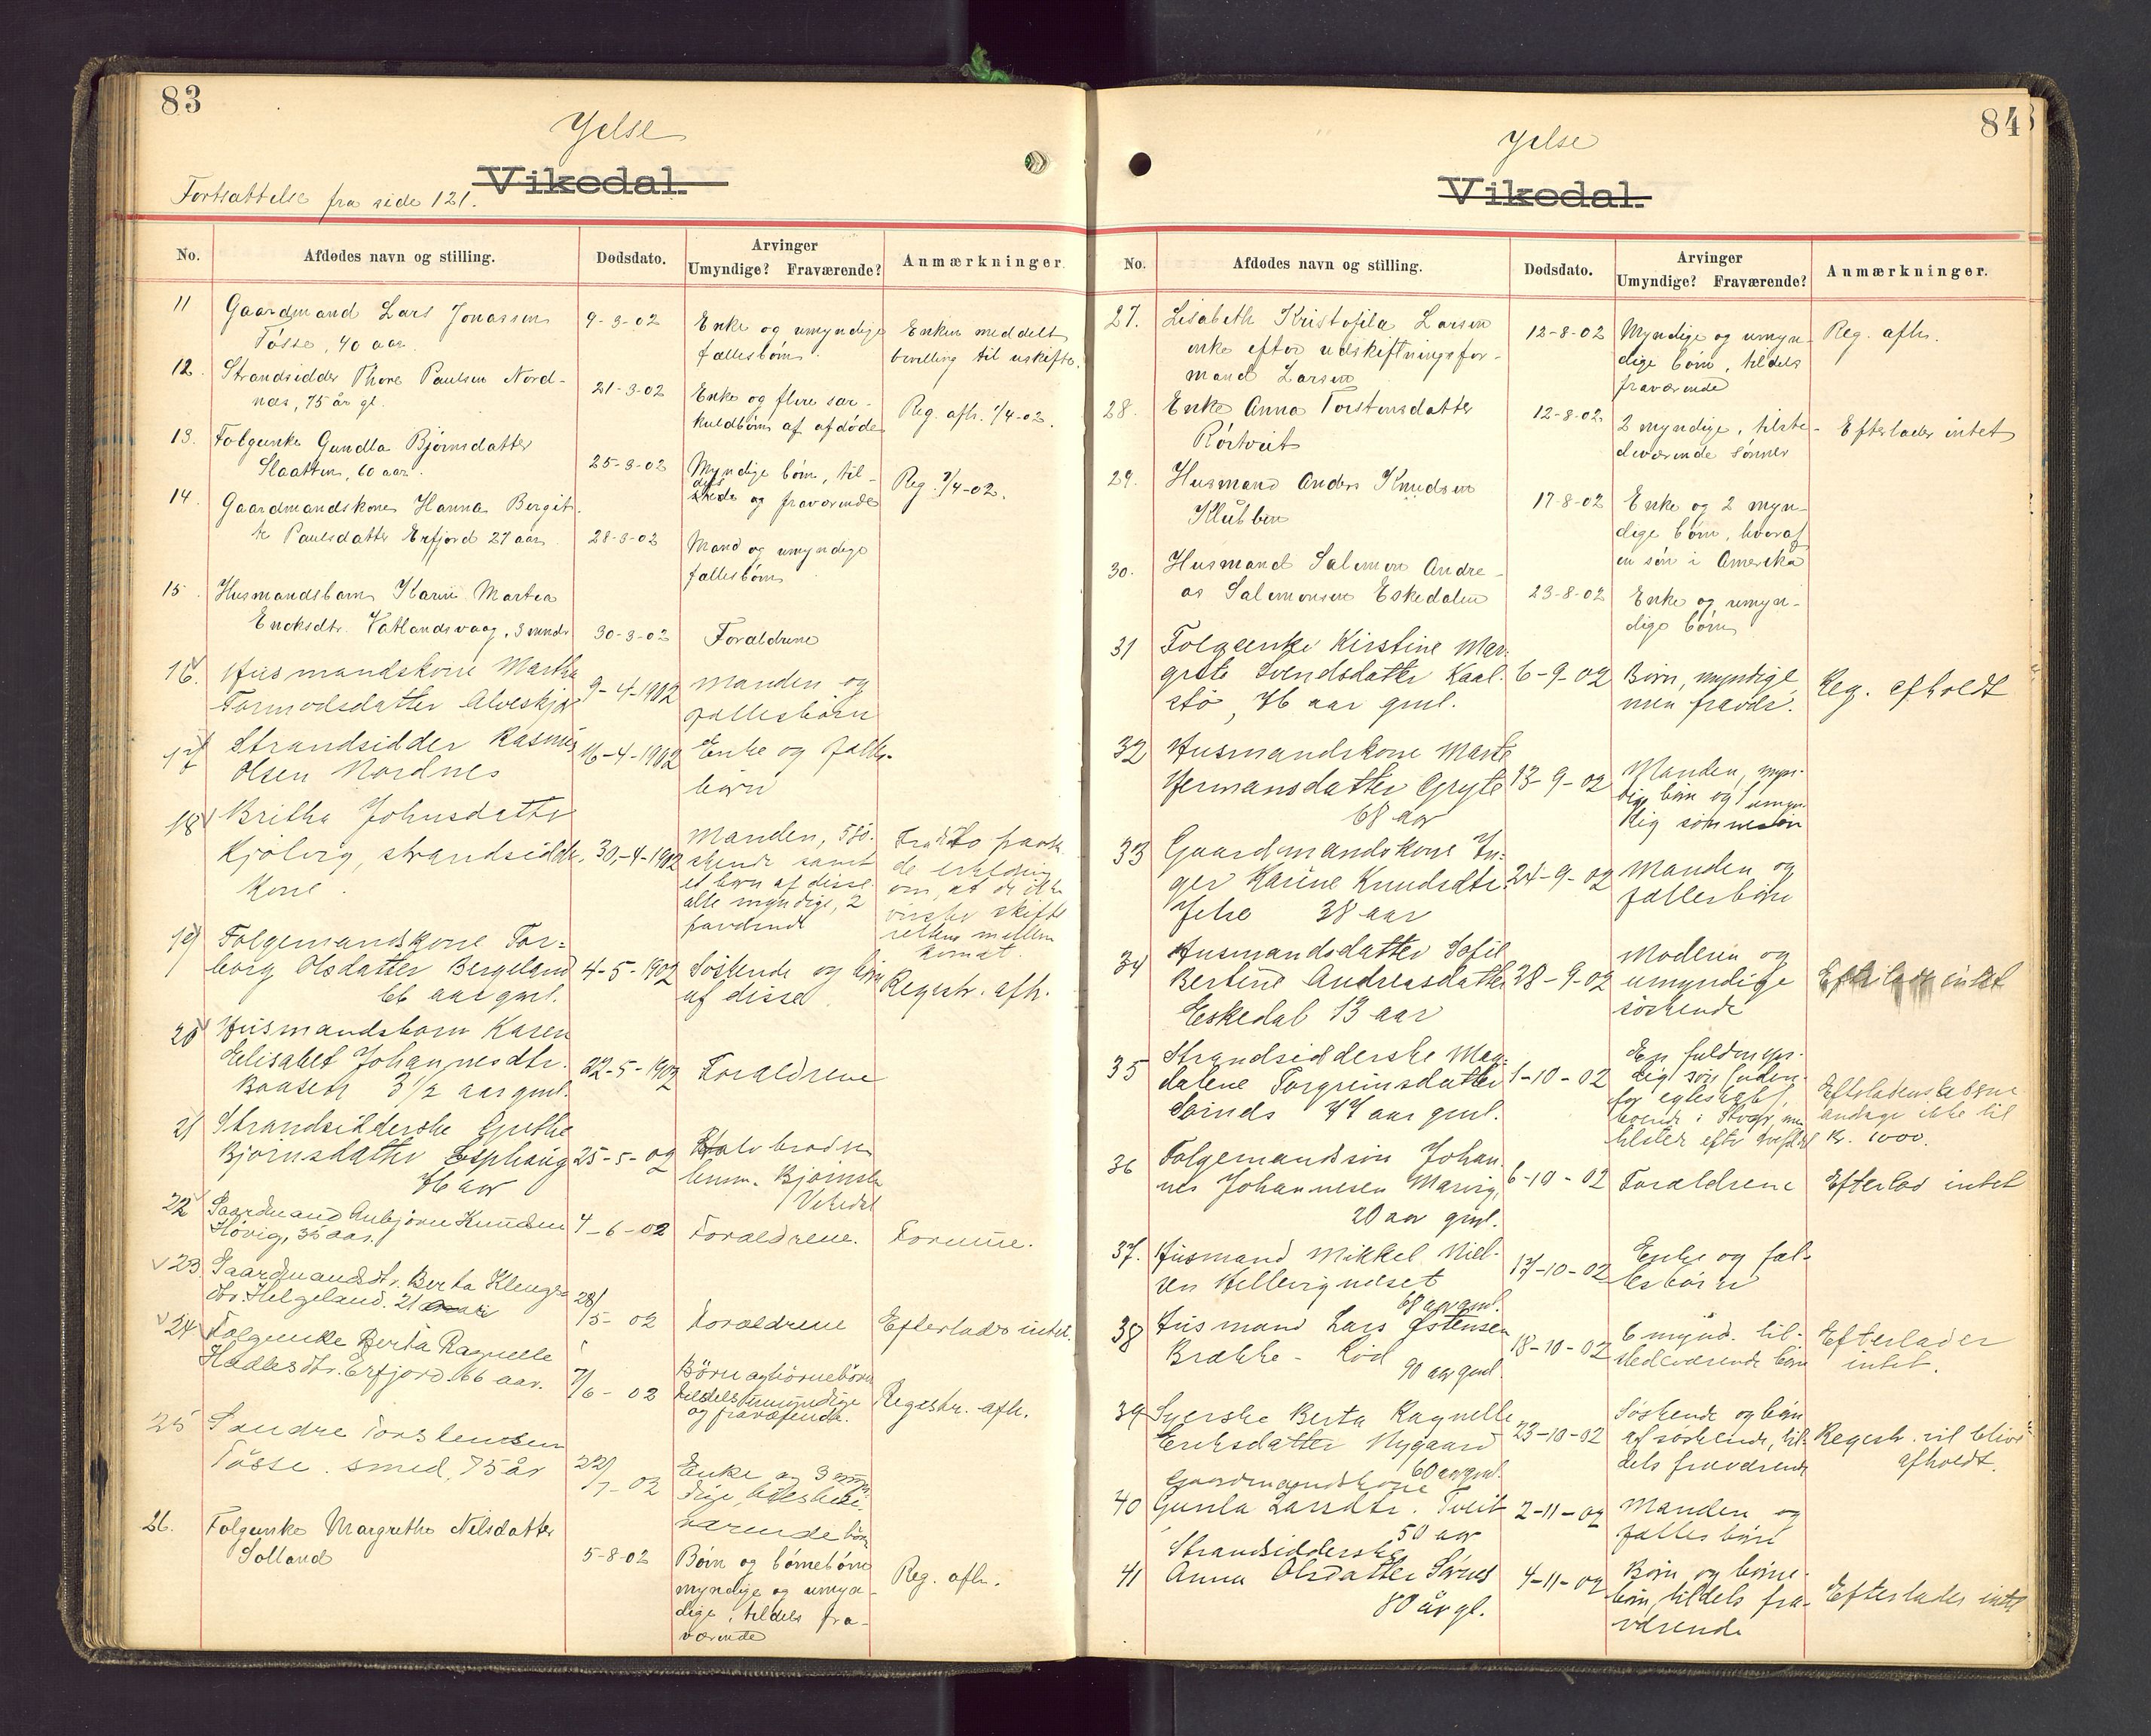 83
Yelse
Vikedal.
Fortsættelse fra side 121.
No.
Afdødes navn og stilling.
Dødsdato.
Arvinger
Umyndige? Fraværende?
Anmærkninger.
11
Gaardmand Lars Jonassen
Tøsse, 40 aar
9-3-02
Enke og umyndige
fællesbørn.
Enken meddelt
bevilling til uskifte.
12.
Strandsidder Thore Paulsen Nord-
næs, 75 år gl.
21-3-02
Enke og flere sær-
kuldbørn af afdøde
Reg. afh. 7/4-02.
13.
Folgeenke Gundla Bjørnsdatter
Slaatten, 60 aar.
25-3-02
Myndige børn, til-
dels
stede og fraværende
Reg. 7/4-02.
14.
Gaardmandskone Hanna Bergit-
te Paulsdatter Erfjord 27 aar
28-3-02
Mand og umyndige
fællesbørn
15.
Husmandsbarn Karin Martea
Eriksdtr. Vatlandsvaag, 3 mndr
30-3-02
Forældrene
16.
Husmandskone Martha
Tormodsdatter Alveskjær
9-4-1902
Manden og
fællesbørn
17
Strandsidder Rasmus
Olsen Nordnes
16-4-1902
Enke og fælles-
børn
18
Britha Johnsdatter
Kjølvig, strandsidder-
kone.
30-4-1902
Manden, søs-
kende samt
et barn af disse
alle myndige, 2
fravdende
de erklæring
om, at de ikke
ønsker skifte
rettens mellem
komst.
19
Folgemandskone Tor-
borg Olsdatter Bergeland
66 aar gml.
4-5-1902
Søskende og børn
af disse.
Registr. afh.
20
Husmandsbarn Karen
Elisabet Johannesdtr.
Baasen 3 1/2 aar gml.
22-5-1902
Forældrene
21
Strandsidderske Grethe
Bjørnsdatter Esphaug
76 aar
25-5-02
Halvbroder
lensm. Bjørnsen
Vikedal
22
Gaardmand Anbjørn Knudsen
Høvig, 35 aar.
4-6-02
Forældrene.
Formue.
23.
Gaardmandsdtr. Berta Klengs-
dtr. Helgeland. 21
28/5-02
Forældrene
Efterlader intet.
24
Folgeenke Berta Ragnelle
Hadlesdtr. Erfjord. 66 aar.
7/6-02
Børn og børnebørn
tildels umyndige
og fraværende.
Registr. afh.
25
Sandre Torstensen
Tøsse. smed, 75 år
22/7-02
Enke og 3 myn-
dige tilstede-
værende børn
26.
Folgeenke Margrethe Nilsdatter
Solland
5-8-02
Børn og børnebørn
myndige og umyn-
dige, tildels fra-
værende
Reg. afh.
84
Yelse
Vikedal.
No.
Afdødes navn og stilling.
Dødsdato.
Arvinger
Umyndige? Fraværende?
Anmærkninger.
27.
Lisabeth Kristofila Larsen
enke efter udskiftningsfor-
mand Larsen
12-8-02
Myndige og umyn-
dige børn, tildels
fraværende
Reg. afh.
28.
Enke Anna Torstensdatter
Rörtveit
12-8-02
2 myndige, tilste-
deværende sønner
Efterlader intet
29.
Husmand Anders Knudsen
Klubben
17-8-02
Enke og 2 myn-
dige børn, hvoraf
en søn i Amerika
30.
Husmand Salemon Andre-
as Salemonsen Eskedalen
23-8-02
Enke og umyn-
dige børn
31
Folgeenke Kirstine Mar-
grete Svendsdatter Kaal-
stø, 76 aar gml.
6-9-02
Børn, myndige
men fravær.
Reg. afholdt
32
Husmandskone Marte
Hermansdatter Gryte
68 aar
13-9-02
Manden, myn-
dige børn og 1 umyn-
dig sønnesøn
33
Gaardmandskone In-
ger Karine Knudsdtr.
Jelse 38 aar
24-9-02
Manden og
fællesbørn
34
Husmandsdatter Sofie
Bertine Andreasdatter
Eskedal 13 aar
28-9-02
Moderen og
umyndige
søskende
Efterlader intet
35
Strandsidderske Mag-
dalene Torgrimsdatter
77 aar gml.
1-10-02
En fuldmyn-
dig søn (uden-
for egteskab)
Efterladenskaberne
andage ikke til
Kr. 1000.
36
Folgemandssøn Johan-
nes Johannesen Marvig,
20 aar gml.
6-10-02
Forældrene
Efterlod intet
37.
Husmand Mikkel Niel-
sen Hellevigneset
68 aar gml.
17-10-02
Enke og fæl-
lesbørn
38
Husmand Lars Østensen
Brække-
90 aar gml.
18-10-02
6 mynd. til-
stedeværende børn
Efterlader
intet.
39
Syerske Berta Ragnelle
Eriksdatter Nygaard
60 aar gml.
23-10-02
Søskende og børn
af søskende, til-
dels fraværende
Registr. vil blive
afholdt.
40
Gaardmandskone
Gunla Larsdtr. Tveit
50 aar
2-11-02
Manden og
fællesbørn
41
Strandsidderske
Anna Olsdatter Sørnes
80 år gl.
4-11-02
Børn og børne-
børn, tildels fra-
værende
Efterlader intet